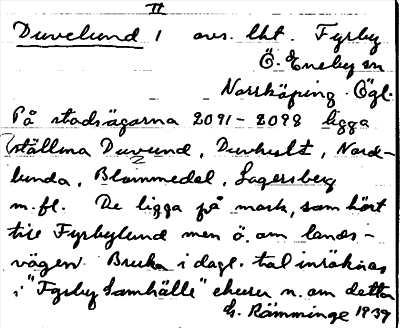 II
Duvelund 1 avs. lht. Fyrby
Ö. Eneby sn
Norrköping. Ögl.
På stadsägorna 2091-2098 ligga
ställena Duvund, Duvhult, Nord-
lunda, Blommedal, Lagersberg
m. fl. De ligga på mark, som hört
till Fyrbylund men ö. om lands-
vägen. Bruka i dagl. tal inräknas
i "Fyrby Samhälle" ehuru n. om detta
G. Rämminge 1939